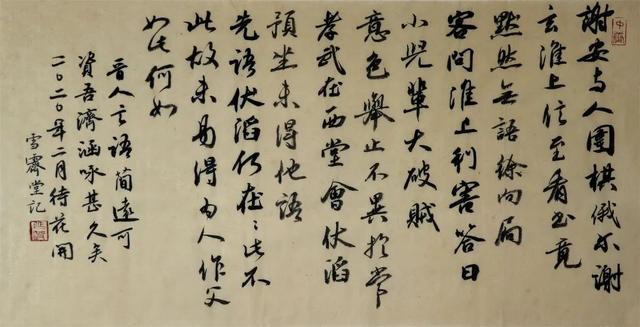 謝安与人圍棋俄尔謝
玄淮上信至看书竟
默然無語徐向局
客問淮上利害答曰
小兒輩大破賊
意色舉止不異於常
孝武在西堂會伏滔
預坐未得他語
先語伏滔何在〻此不
此故未易得为人作父
如此何如
晉人言語簡遠可
資吾濟涵咏甚久矣
二〇二〇年二月待花開
雪齋堂記